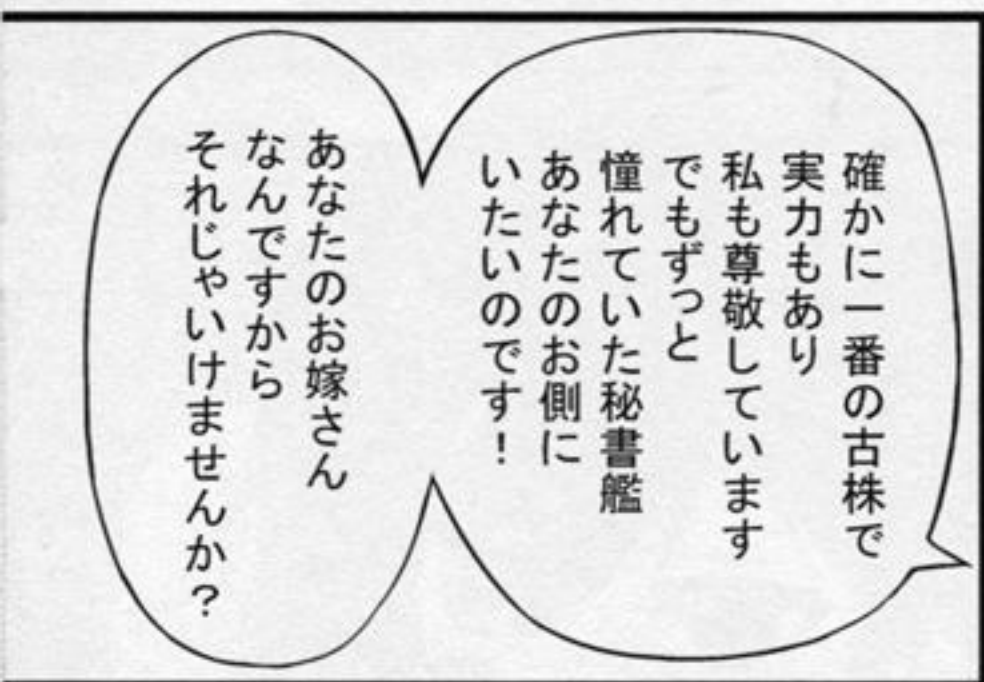 確かに一番の古株で
実力もあり
私も尊敬しています
でもずっと
憧れていた秘書艦
あなたのお側に
いたいのです！
あなたのお嫁さん
なんですから
それじゃいけませんか？